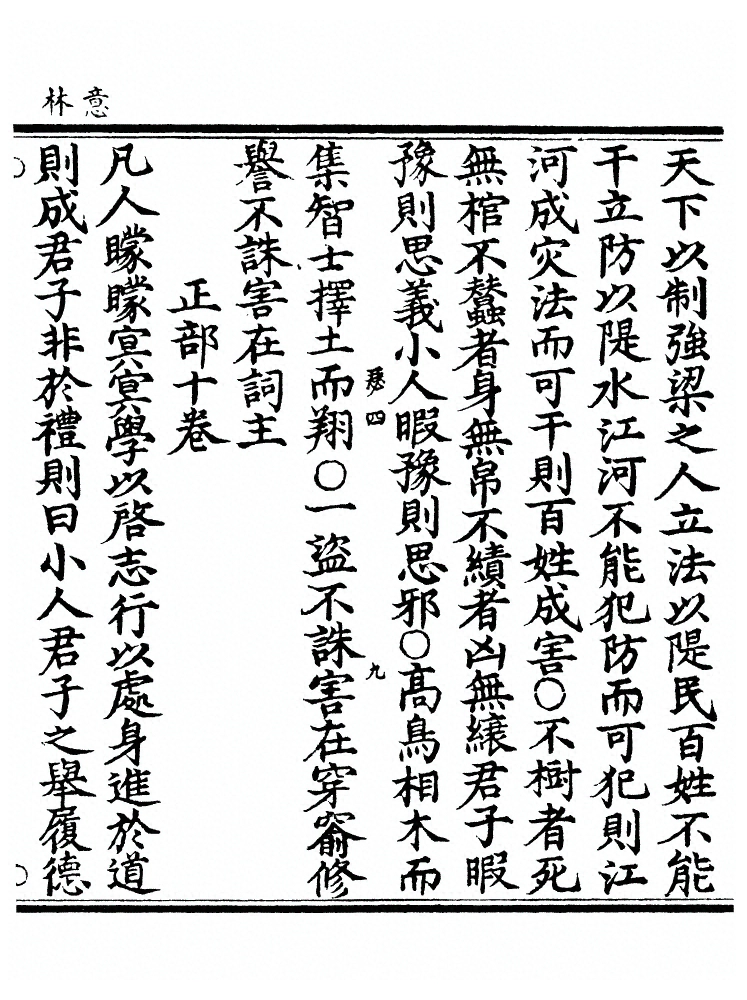 意林
天下以制強梁之人立法以隄民百姓不能
干立防以隄水江河不能犯防而可犯則江
河成灾法而可干則百姓成害○不樹者死
無棺不蠶者身無帛不績者凶無縗君子暇
豫則思義小人暇豫則思邪○高鳥相木而
四
九
集智士擇土而翔○一盜不誅害在穿窬修
譽不誅害在詞主
正部十卷
凡人矇矇冥冥學以啓志行以處身進於道
則成君子非於禮則曰小人君子之舉履德